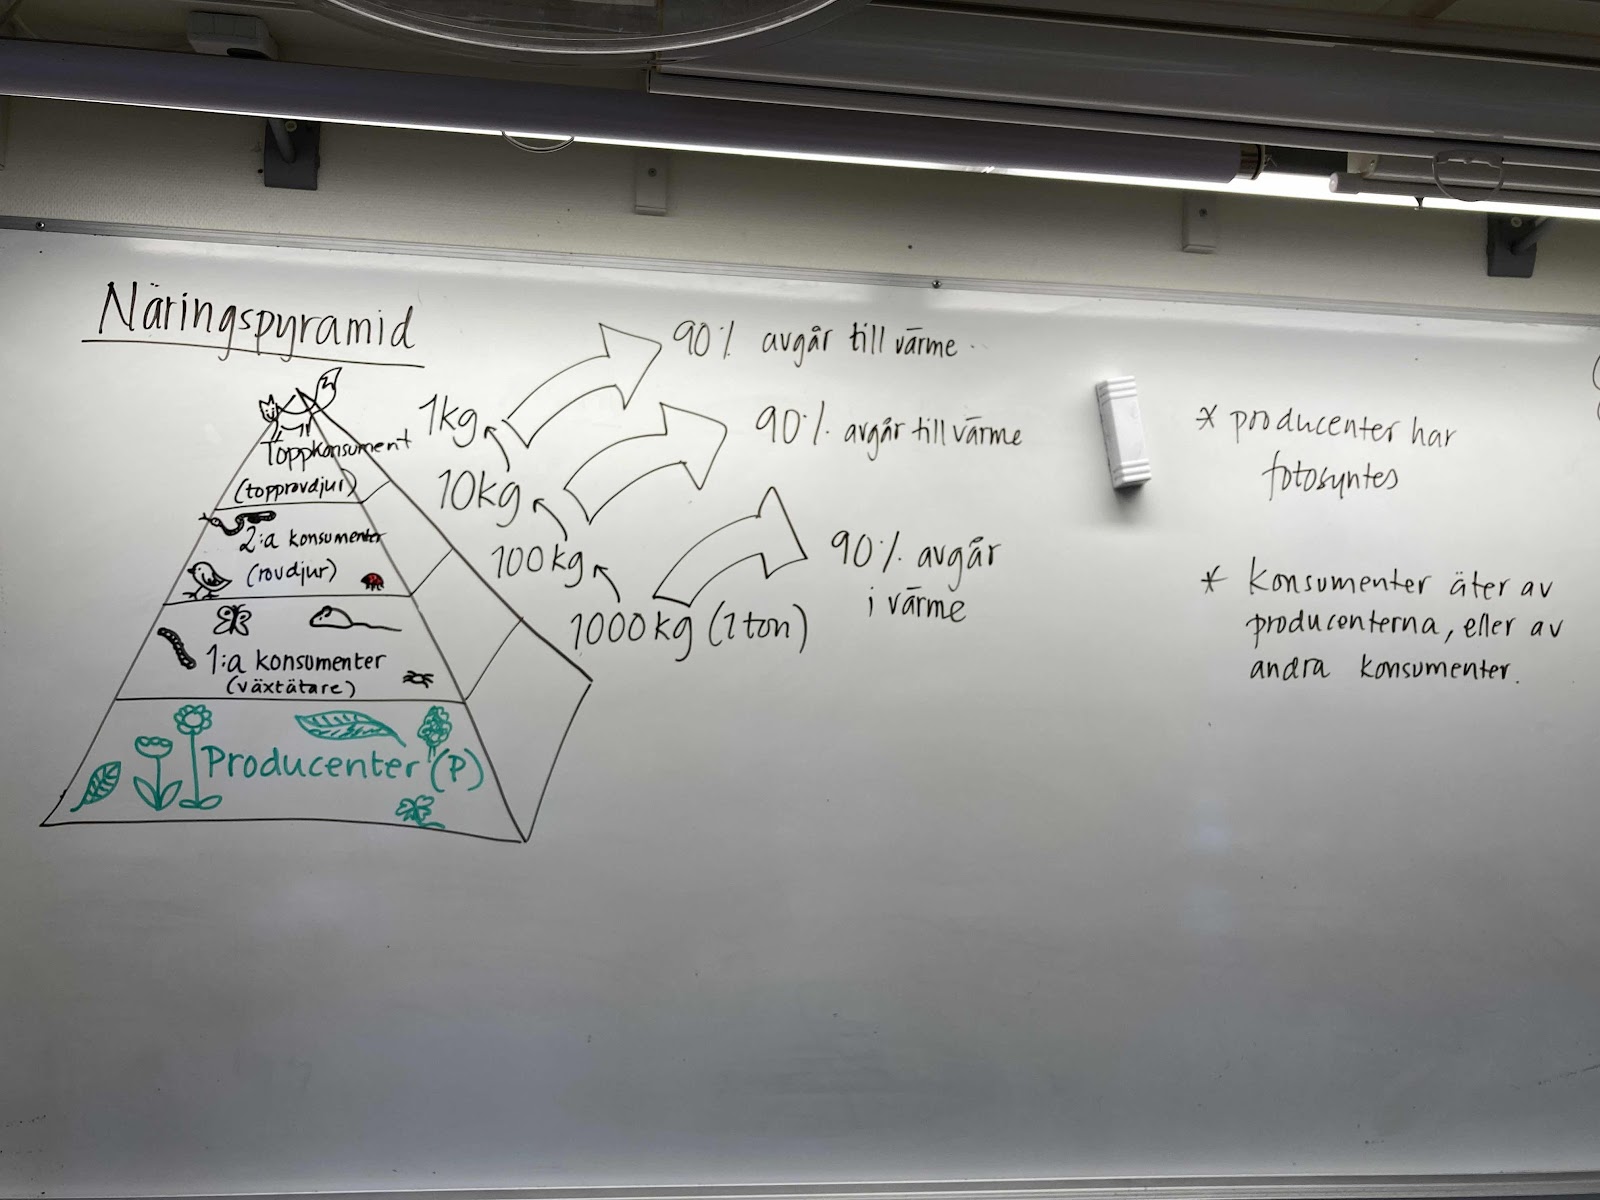 Näringspyramid
Toppkonsument
(topprovdjur)
2:a konsumenter
(rovdjur)
1:a konsumenter
(växtätare)
Producenter (P)
1kg
10kg
100kg
1000kg (1 ton)
90% avgår till värme.
90% avgår till värme
90% avgår
i värme
* producenter har
fotosyntes
* Konsumenter äter av
producenterna, eller av
andra konsumenter.